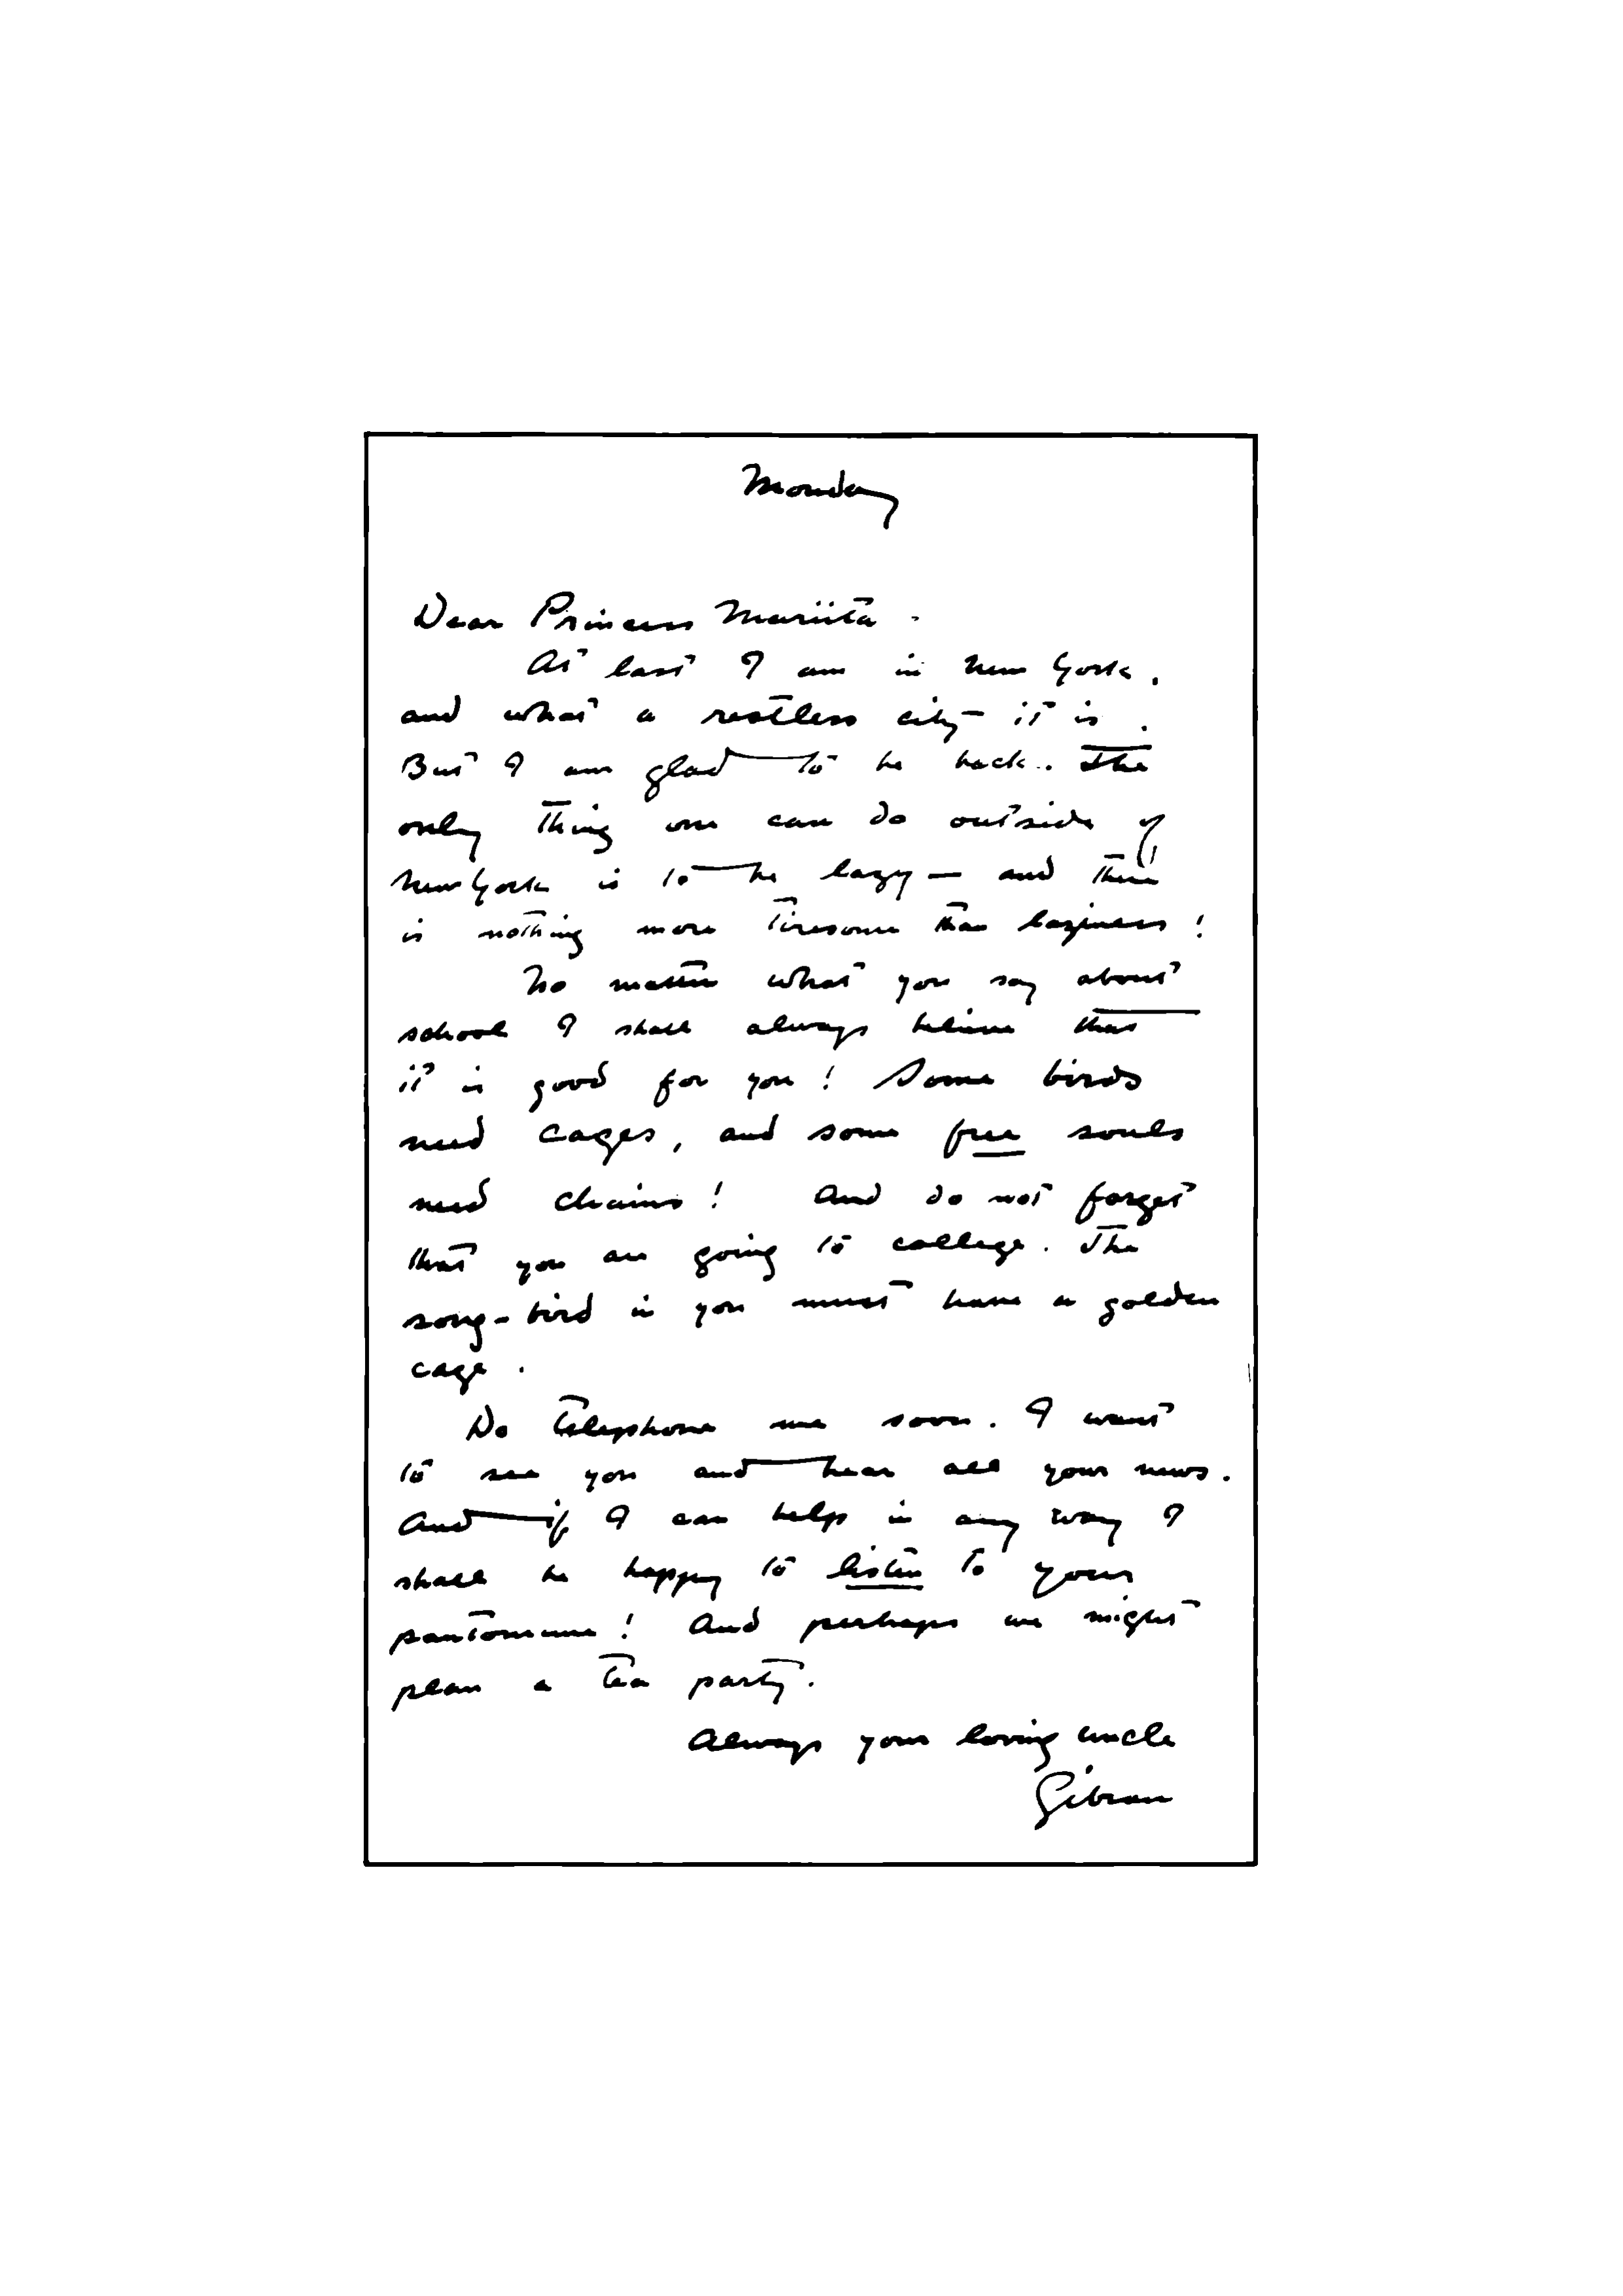 Monday
Dear Princess Mariita.
At last I am in New York,
and what a restless city it is.
But I am glad to be back. The
only thing one can do outside of
New York is to be lazy — and there
is nothing more tiresome than laziness!
No matter what you say about
school I shall always believe that
it is good for you! Some birds
need cages, and some free souls
need chains! And do not forget
that you are going to college. The
song-bird in you must have a golden
cage.
Do telephone me soon. I want
to see you and hear all your news.
And if I can help in any way I
shall be happy to listen to your
pantomime! And perhaps we might
plan a tea party.
Always your loving uncle
Gibran